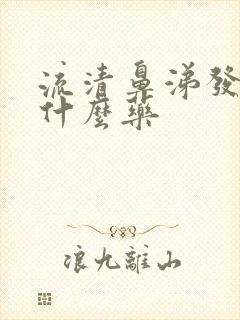 流清鼻涕發
什麼藥
浪九離山